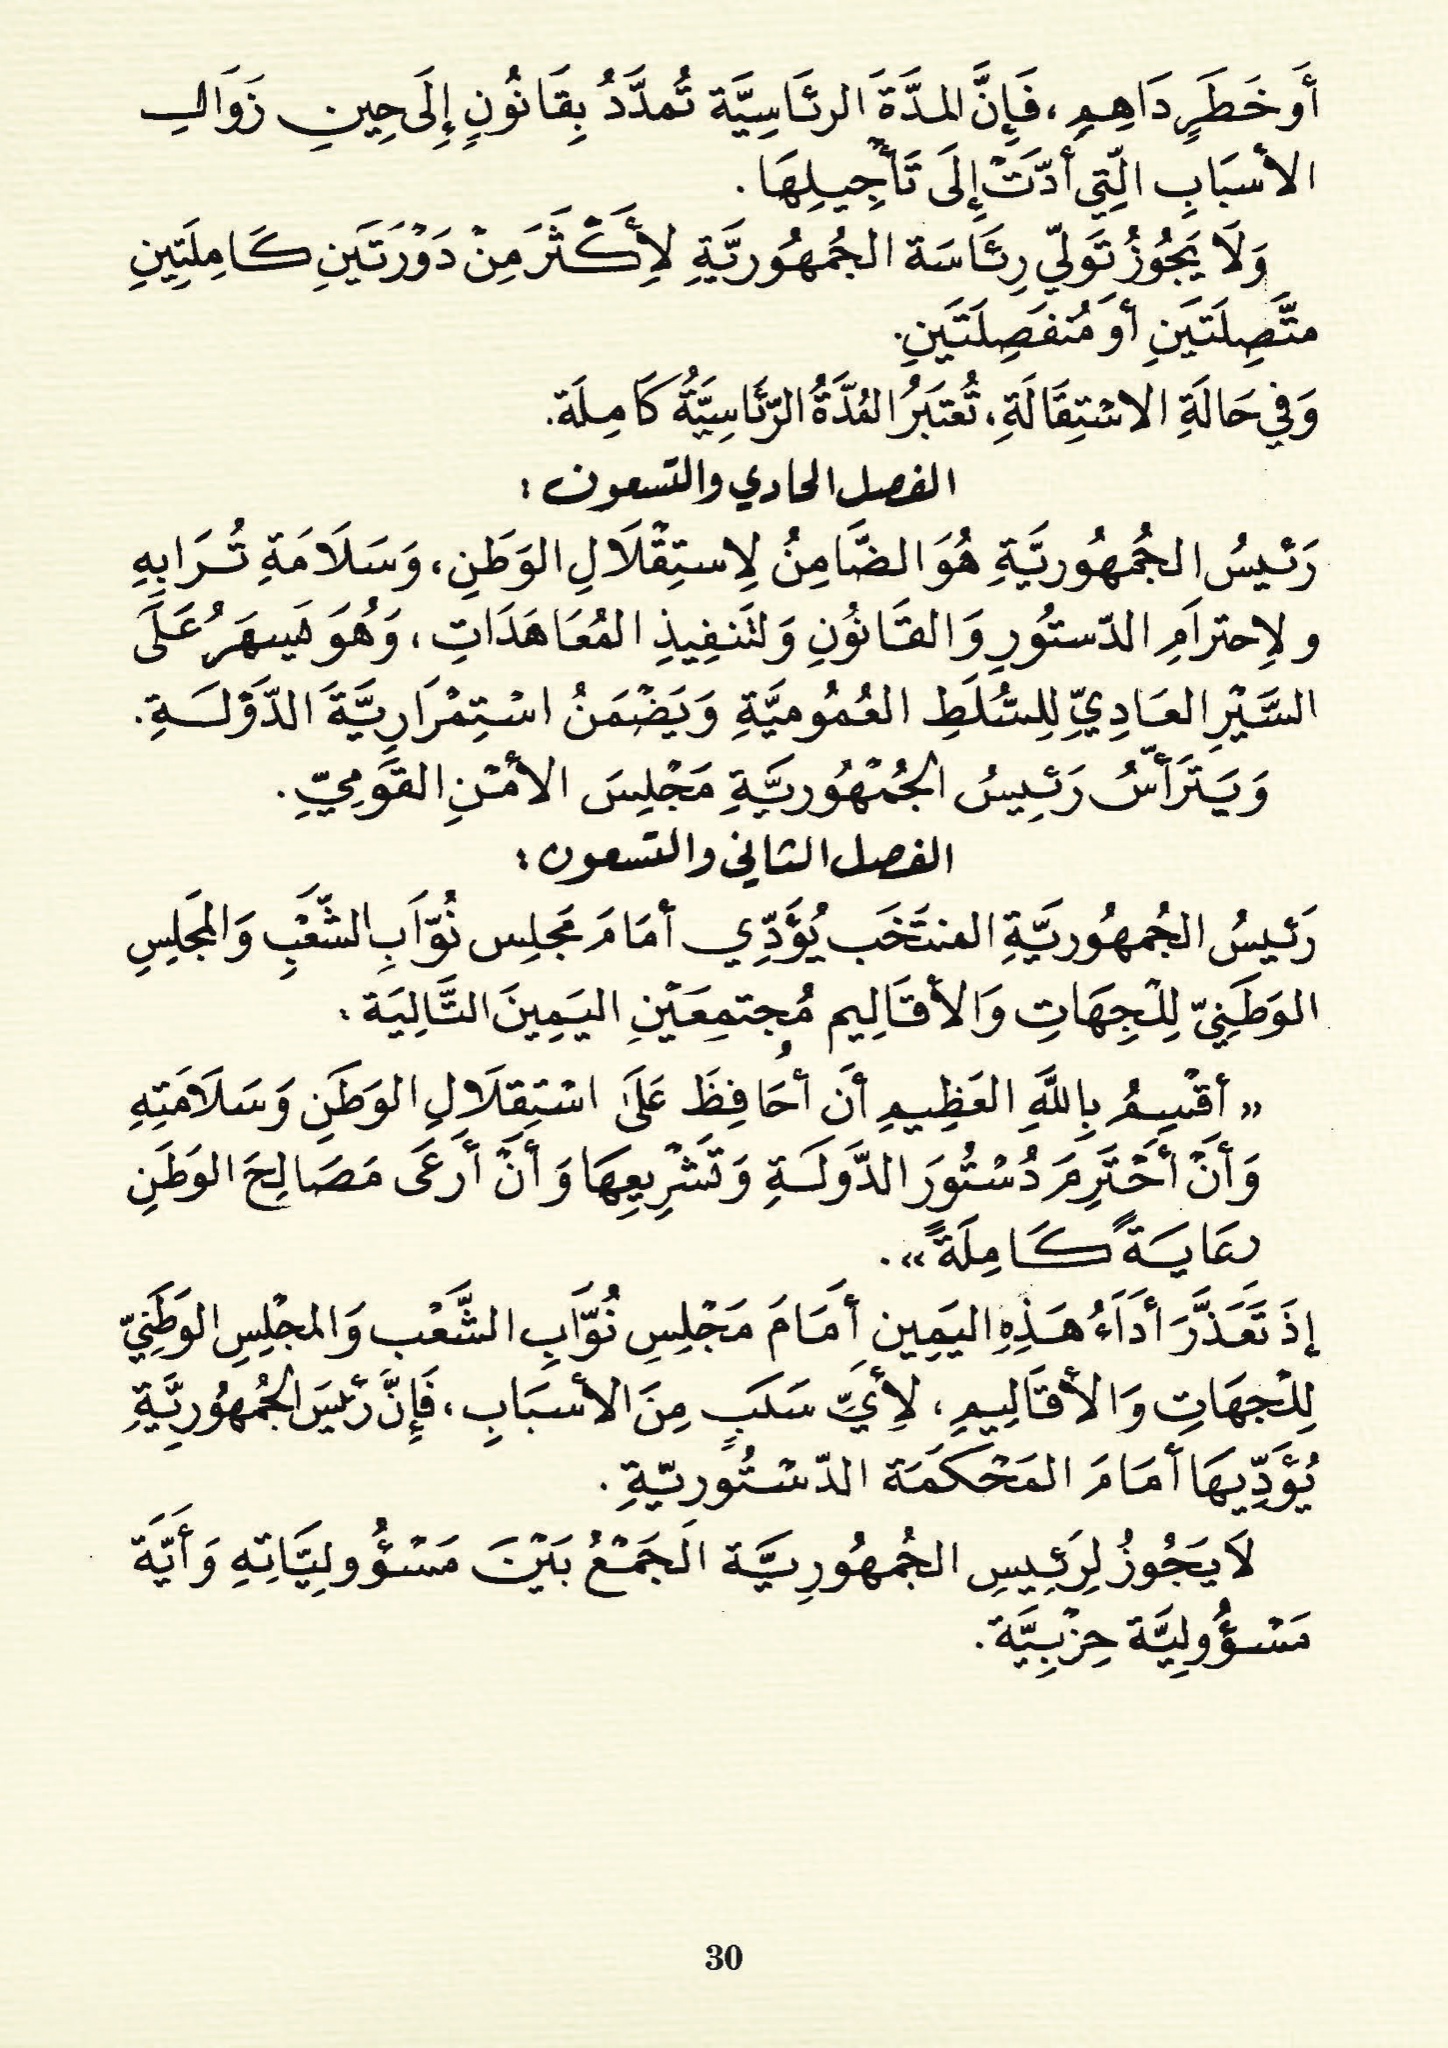 أَو خَطَرٍ دَاهِمٍ، فَإِنَّ المدَّةَ الرئَاسِيَّة تُمدَّدُ بِقَانُونٍ إِلَى حِينِ زَوَالِ
الأسبَابِ الّتِي أدّتْ إِلَى تَأْجِيلِهَا .
وَلَا يَجُوزُ تَوَلّي رِئَاسَة الجُمهُوريَّةِ لأِكْثَرَ مِنْ دَوْرَتَينِ كَامِلَتَينِ
متَّصِلَتَينِ أَو مُنفَصِلَتَينِ.
وَفِي حَالَةِ الاسْتِقَالَةِ، تُعتَبَرُ المُدَّةُ الرّئَاسِيَّةُ كَامِلَة.
الفصل الحادي والتسعون :
رَئيسُ الجُمهُوريَّةِ هُوَ الضَّامِنُ لِاستِقْلَالِ الوَطَنِ، وَسَلَامَةِ تُرَابِهِ
ولِاحترَامِ الدّستُورِ وَالقَانُونِ وَلتَنفِيذِ المُعَاهَدَاتِ، وَهُوَ يَسهَرُ عَلَى
السَّيْرِ العَادِيِّ لِلسُّلَطِ العُمُوميَّةِ وَيَضْمَنُ اسْتِمْرَارِيَّةَ الدَّوْلَةِ.
وَيَتَرَأّسُ رَئِيسُ الجُمْهُوريَّةِ مَجْلِسَ الأمْنِ القَومِيّ.
الفصل الثاني والتسعون :
رَئيسُ الجُمهُوريَّةِ المنتَخَب يُؤَدِّي أمَامَ مَجلِس نُوّابِ الشَّعْبِ وَالمَجلِسِ
الوَطَنِيّ لِلْجِهَاتِ وَالأقَالِيم مُجتمِعَيْنِ اليَمِينَ التَّالِيَة :
« أقْسِمُ بِاللَّهِ العَظِيمِ أَن أُحَافِظَ عَلَى اسْتِقلَالِ الوَطَنِ وَسَلَامَتِهِ
وَأَنْ أحْتَرِمَ دُسْتُورَ الدَّولَةِ وَتَشْرِيعِهَا وَأَنْ أَرعَى مَصَالِحَ الوَطَنِ
رعَايَةً كَامِلَةً ».
إذَ تَعَذَّرَ أدَاءُ هَذِهِ اليَمِين أَمَامَ مَجْلِسِ نُوَّابِ الشَّعْب وَالمجْلِسِ الوَطَنِيّ
لِلْجِهَاتِ وَالأقَالِيمِ، لأِيِّ سَبَبٍ مِنَ الأسبَابِ، فَإِنَّ رَئيسَ الجُمهُوريَّةِ
يُؤَدِّيهَا أمَامَ المَحْكَمَة الدّسْتُوريّةِ .
لَا يَجُوزُ لِرَئِيسِ الجُمهُورِيَّة الجَمْعُ بَيْنَ مَسْؤُولِيَّاتِهِ وَأَيَّةَ
مَسْؤُولِيَّة حِزْبِيَّة.
30